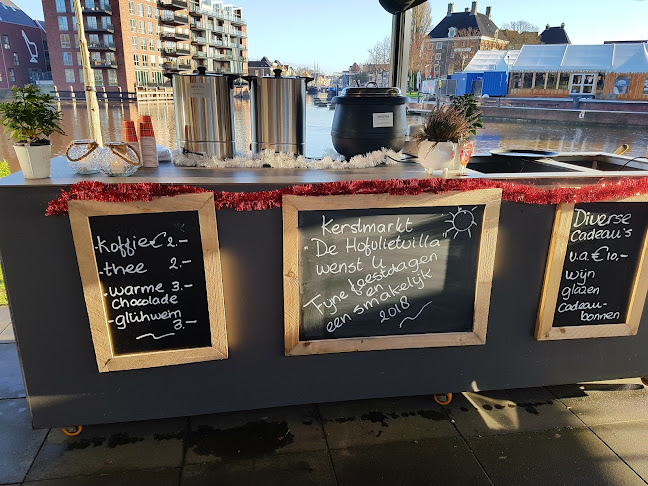 -koffie € 2.-
-thee 2.-
-warme 3.-
chocolade
-glühwein 3.-
Kerstmarkt
De Hofvlietvilla
wenst u
Fijne feestdagen
en
een smakelijk
2018
Diverse
Cadeau's
v.a. € 10,-
wijn
glazen
cadeau-
bonnen